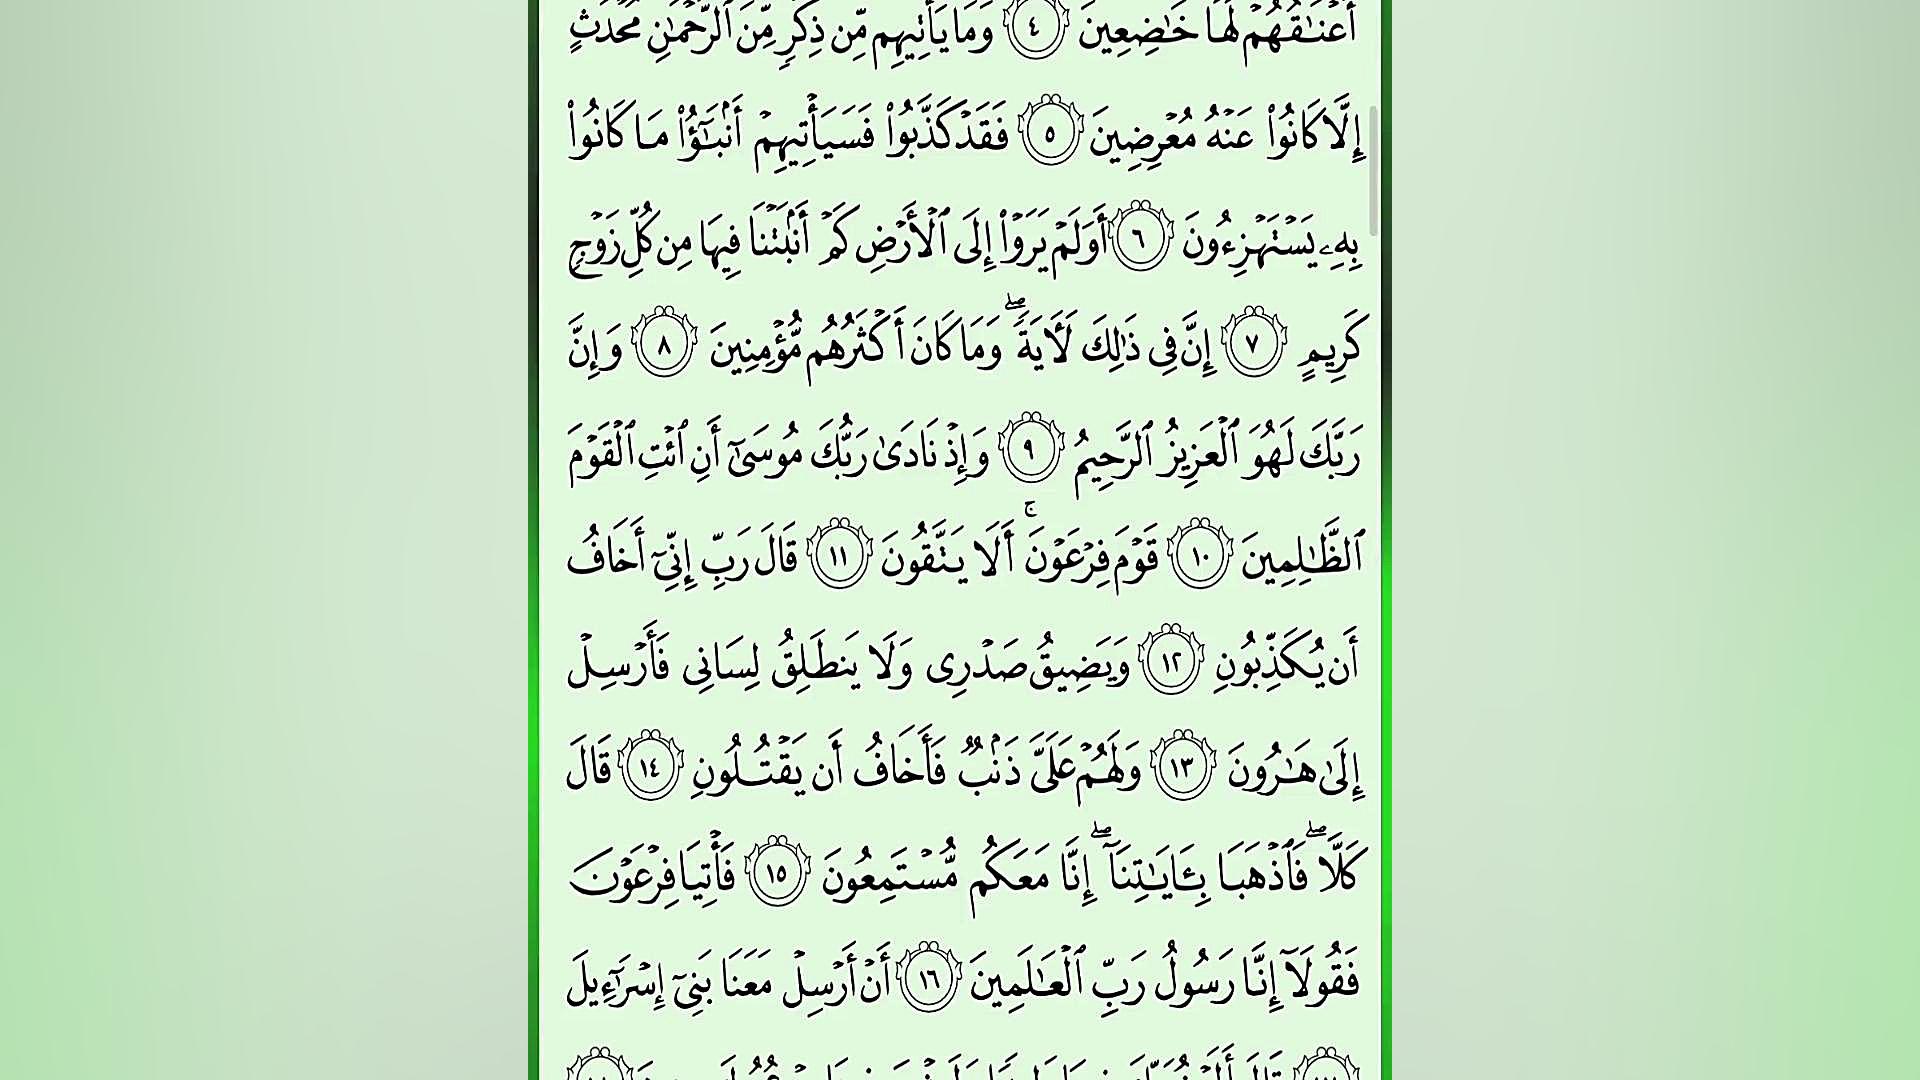 أَعْنَٰقُهُمْ لَهَا خَٰضِعِينَ ٤ وَمَا يَأْتِيهِم مِّن ذِكْرٍ مِّنَ ٱلرَّحْمَٰنِ مُحْدَثٍ
إِلَّا كَانُوا۟ عَنْهُ مُعْرِضِينَ ٥ فَقَدْ كَذَّبُوا۟ فَسَيَأْتِيهِمْ أَنۢبَٰٓؤُا۟ مَا كَانُوا۟
بِهِۦ يَسْتَهْزِءُونَ ٦ أَوَلَمْ يَرَوْا۟ إِلَى ٱلْأَرْضِ كَمْ أَنۢبَتْنَا فِيهَا مِن كُلِّ زَوْجٍ
كَرِيمٍ ٧ إِنَّ فِى ذَٰلِكَ لَءَايَةً ۖ وَمَا كَانَ أَكْثَرُهُم مُّؤْمِنِينَ ٨ وَإِنَّ
رَبَّكَ لَهُوَ ٱلْعَزِيزُ ٱلرَّحِيمُ ٩ وَإِذْ نَادَىٰ رَبُّكَ مُوسَىٰٓ أَنِ ٱئْتِ ٱلْقَوْمَ
ٱلظَّٰلِمِينَ ١٠ قَوْمَ فِرْعَوْنَ ۚ أَلَا يَتَّقُونَ ١١ قَالَ رَبِّ إِنِّىٓ أَخَافُ
أَن يُكَذِّبُونِ ١٢ وَيَضِيقُ صَدْرِى وَلَا يَنطَلِقُ لِسَانِى فَأَرْسِلْ
إِلَىٰ هَٰرُونَ ١٣ وَلَهُمْ عَلَىَّ ذَنۢبٌ فَأَخَافُ أَن يَقْتُلُونِ ١٤ قَالَ
كَلَّا ۖ فَٱذْهَبَا بِـَٔايَٰتِنَآ ۖ إِنَّا مَعَكُم مُّسْتَمِعُونَ ١٥ فَأْتِيَا فِرْعَوْنَ
فَقُولَآ إِنَّا رَسُولُ رَبِّ ٱلْعَٰلَمِينَ ١٦ أَنْ أَرْسِلْ مَعَنَا بَنِىٓ إِسْرَٰٓءِيلَ